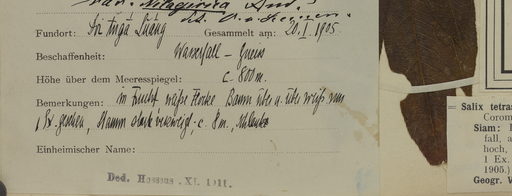 var. Nilagirica And.
det. O. v. Seemen.
Fundort: Doi Ångå Luång Gesammelt am: 20. I. 1905.
Beschaffenheit: Wasserfall – Gneis
Höhe über dem Meeresspiegel: c. 800 m.
Bemerkungen: im weiße Baum über u. über weiß von
gesehen, Stamm stark verzweigt, c. 8 m.,
Einheimischer Name:
Ded. Hosseus. XI. 1911.
= Salix tetras
Corom
Siam: D
fall, a
hoch,
1 Ex.
1905.)
Geogr. V